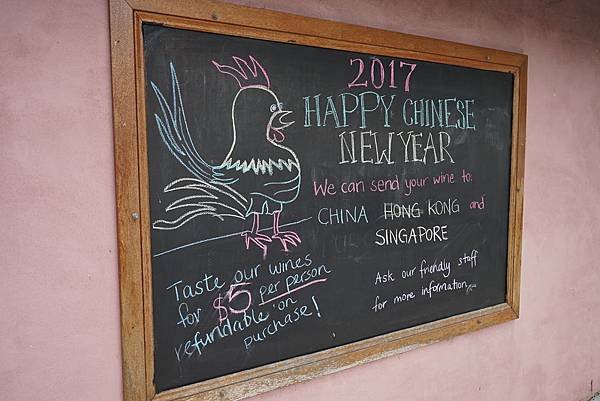 2017
HAPPY CHINESE
NEW YEAR
We can send your wine to:
CHINA HONG KONG and
SINGAPORE
Taste our wines
for $5 per person
refundable on
purchase!
Ask our friendly staff
for more information